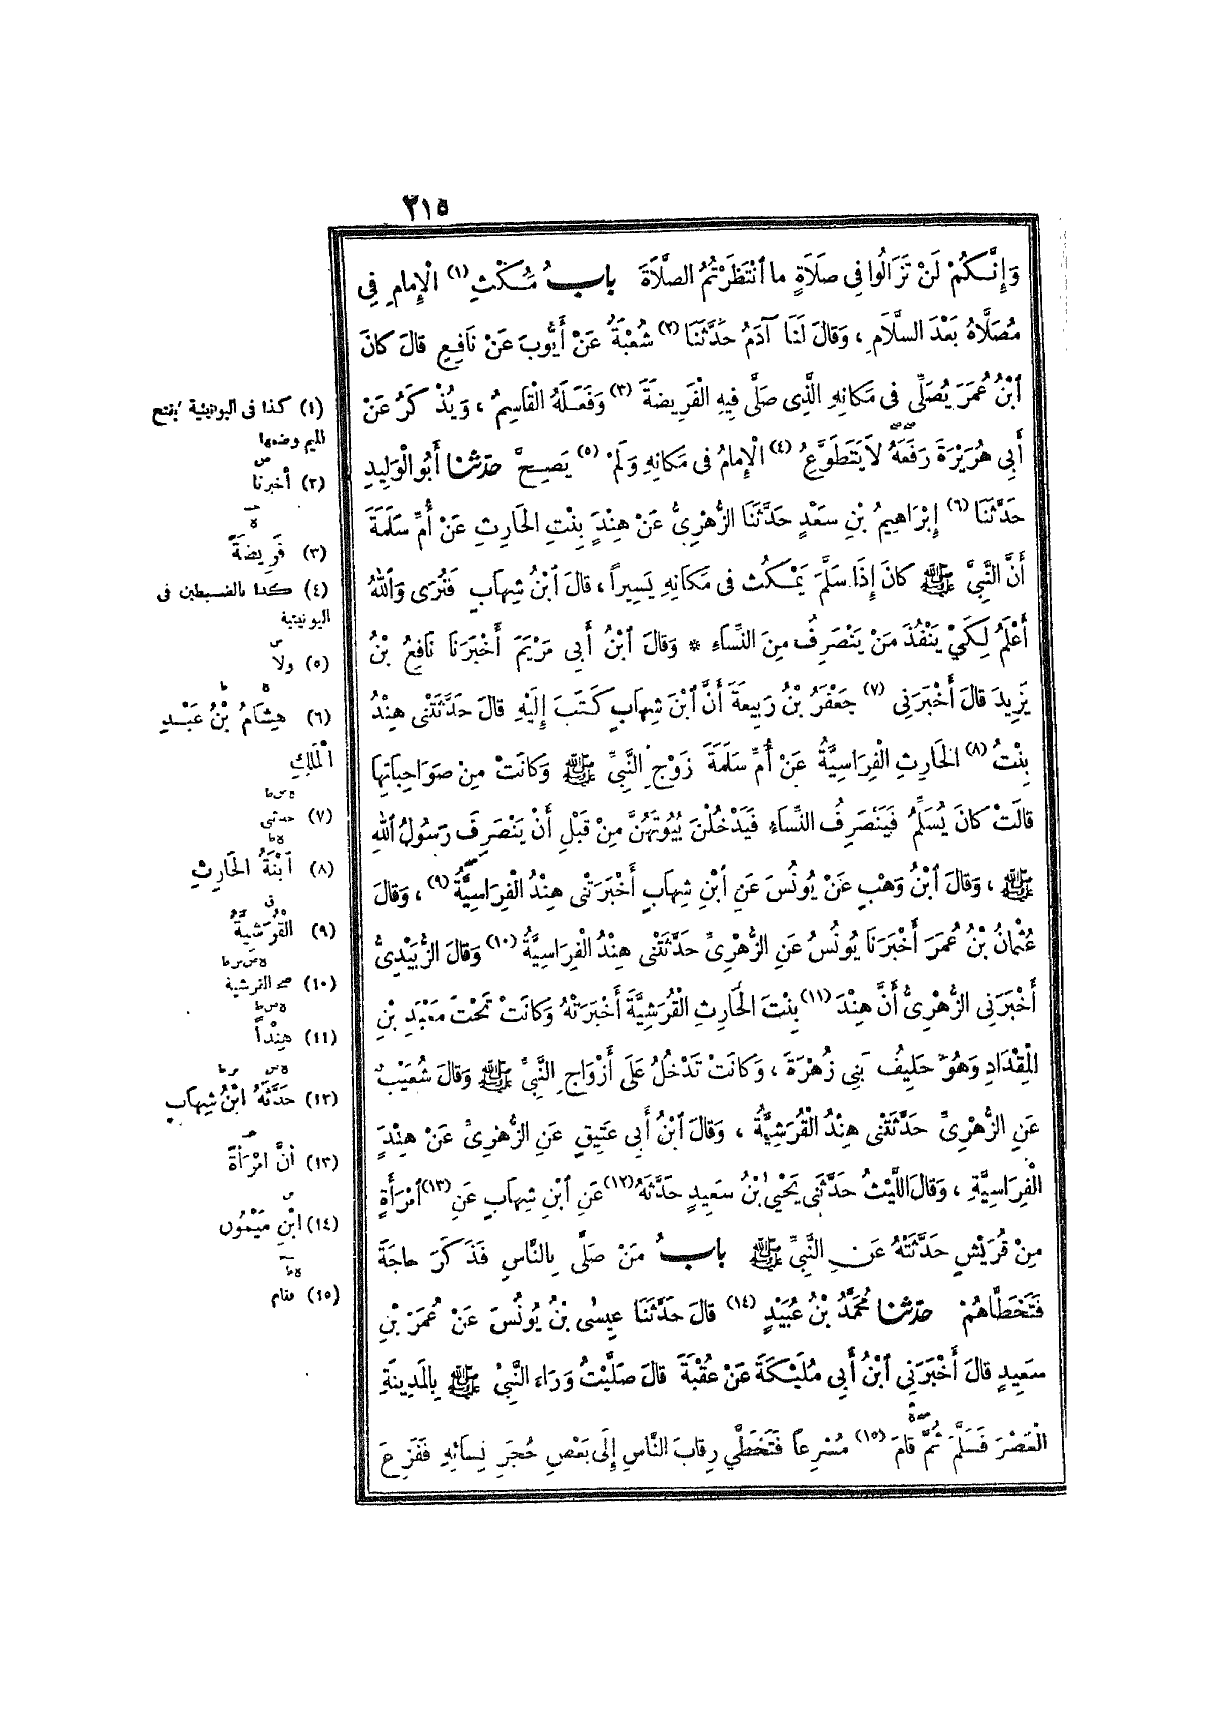 ٢١٥
وَإِنَّكُمْ لَنْ تَزَالُوا فِى صَلَاةٍ ما ٱنْتَظَرْتُمُ الصَّلَاةَ بابُ مُكْثِ (١) الْإِمامِ فِى
مُصَلَّاهُ بَعْدَ السَّلَامِ ، وَقالَ لَنَا آدَمُ حَدَّثَنَا (٢) شُعْبَةُ عَنْ أَيُّوبَ عَنْ نَافِعٍ قالَ كانَ
ٱبْنُ عُمَرَ يُصَلِّى فى مَكانِهِ الَّذِى صَلَّى فِيهِ الْفَرِيضَةَ (٣) وَفَعَلَهُ الْقَاسِمُ ، وَيُذْكَرُ عَنْ
أَبِى هُرَيْرَةَ رَفَعَهُ لاَ يَتَطَوَّعُ (٤) الْإِمامُ فى مَكانِهِ وَلَمْ (٥) يَصِحَّ حدّثنا أَبُو الْوَلِيدِ
حَدَّثَنَا (٦) إِبْرَاهِيمُ بْنِ سَعْدٍ حَدَّثَنَا الزُّهْرِىُّ عَنْ هِنْدٍ بِنْتِ الحَارِثِ عَنْ أُمِّ سَلَمَةَ
أَنَّ النَّبِىَّ ﷺ كانَ إِذَا سَلَّمَ يَمْكُثُ فى مَكانِهِ يَسِيراً ، قالَ ٱبْنُ شِهَابٍ فَنُرَى وَٱللهُ
أَعْلَمُ لِكَىْ يَنْفُذَ مَنْ يَنْصَرِفُ مِنَ النِّسَاءِ * وَقالَ ٱبْنُ أَبِى مَرْيَمَ أَخْبَرَنَا نَافِعُ بْنُ
يَزِيدَ قالَ أَخْبَرَنِى (٧) جَعْفَرُ بْنُ رَبِيعَةَ أَنَّ ٱبْنَ شِهابٍ كَتَبَ إِلَيْهِ قالَ حَدَّثَتْنى هِنْدُ
بِنْتُ (٨) الحَارِثِ الْفِرَاسِيَّةُ عَنْ أُمِّ سَلَمَةَ زَوْجِ النَّبِىِّ ﷺ وَكانَتْ مِنْ صَوَاحِبَاتِهَا
قالَتْ كانَ يُسَلِّمُ فَيَنْصَرِفُ النِّسَاءِ فَيَدْخُلْنَ بُيُوتَهُنَّ مِنْ قَبْلِ أَنْ يَنْصَرِفَ رَسُولُ ٱللهِ
ﷺ ، وَقالَ ٱبْنُ وَهْبٍ عَنْ يُونُسَ عَنِ ٱبْنِ شِهابٍ أَخْبَرَتْنى هِنْدُ الْفِرَاسِيَّةُ (٩) ، وَقالَ
عُثْمانُ بْنُ عُمَرَ أَخْبَرَنَا يُونُسُ عَنِ الزُّهْرِىِّ حَدَّثَتْنى هِنْدُ الْفِرَاسِيَّةُ (١٠) وَقالَ الزُّبَيْدِىُّ
أَخْبَرَنِى الزُّهْرِىُّ أَنَّ هِنْدَ (١١) بِنْتَ الحَارِثِ الْقُرَشِيَّةَ أَخْبَرَتْهُ وَكانَتْ تَحْتَ مَعْبَدِ بْنِ
الْمِقْدَادِ وَهُوَ حَلِيفُ بَنِى زُهْرَةَ ، وَكانَتْ تَدْخُلُ عَلَى أَزْوَاجِ النَّبِىِّ ﷺ وَقالَ شُعَيْبٌ
عَنِ الزُّهْرِىِّ حَدَّثَتْنى هِنْدُ الْقُرَشِيَّةُ ، وَقالَ ٱبْنُ أَبِى عَتِيقٍ عَنِ الزُّهْرِىِّ عَنْ هِنْدٍ
الْفِرَاسِيَّةِ ، وَقالَ اللَّيْثُ حَدَّثَنى يَحْيى بْنُ سَعِيدٍ حَدَّثَهُ (١٢) عَنِ ٱبْنِ شِهابٍ عَنِ (١٣) ٱمْرَأَةٍ
مِنْ قُرَيْشٍ حَدَّثَتْهُ عَنِ النَّبِىِّ ﷺ بابُ مَنْ صَلَّى بِالنَّاسِ فَذَكَرَ حاجَةً
فَتَخَطَّاهُمْ حدّثنا مُحَمَّدُ بْنُ عُبَيْدٍ (١٤) قالَ حَدَّثَنَا عِيسى بْنُ يُونُسَ عَنْ عُمَرَ بْنِ
سَعِيدٍ قالَ أَخْبَرَنِى ٱبْنُ أَبِى مُلَيْكَةَ عَنْ عُقْبَةَ قالَ صَلَّيْتُ وَرَاءَ النَّبِىِّ ﷺ بِالْمَدِينَةِ
الْعَصْرَ فَسَلَّمَ ثُمَّ قامَ (١٥) مُسْرِعاً فَتَخَطَّى رِقابَ النَّاسِ إِلَى بَعْضِ حُجَرِ نِسَائِهِ فَفَزِعَ
(١) كذا فى اليونينية بفتح
الميم وضمها
ص
(٢) أخبرنا
ه
(٣) فَرِيضَةً
(٤) كذا بالضبطين فى
اليونينية
ص
(٥) ولا
ه ط
(٦) هِشَامُ بْنُ عَبْدِ
الْمَلِكِ
ه ص ط
(٧) حدثنى
ه ط
(٨) ٱبْنَةُ الحَارِثِ
(٩) الْقُرَشِيَّةُ
ه ص ط
(١٠) صح القرشية
ه ص ط
(١١) هِنْداً
(١٢) حَدَّثَهُ ابْنُ شِهابٍ
(١٣) أنَّ امْرَأَةً
ص
(١٤) ابْنِ مَيْمُونٍ
ه ط
(١٥) فقام